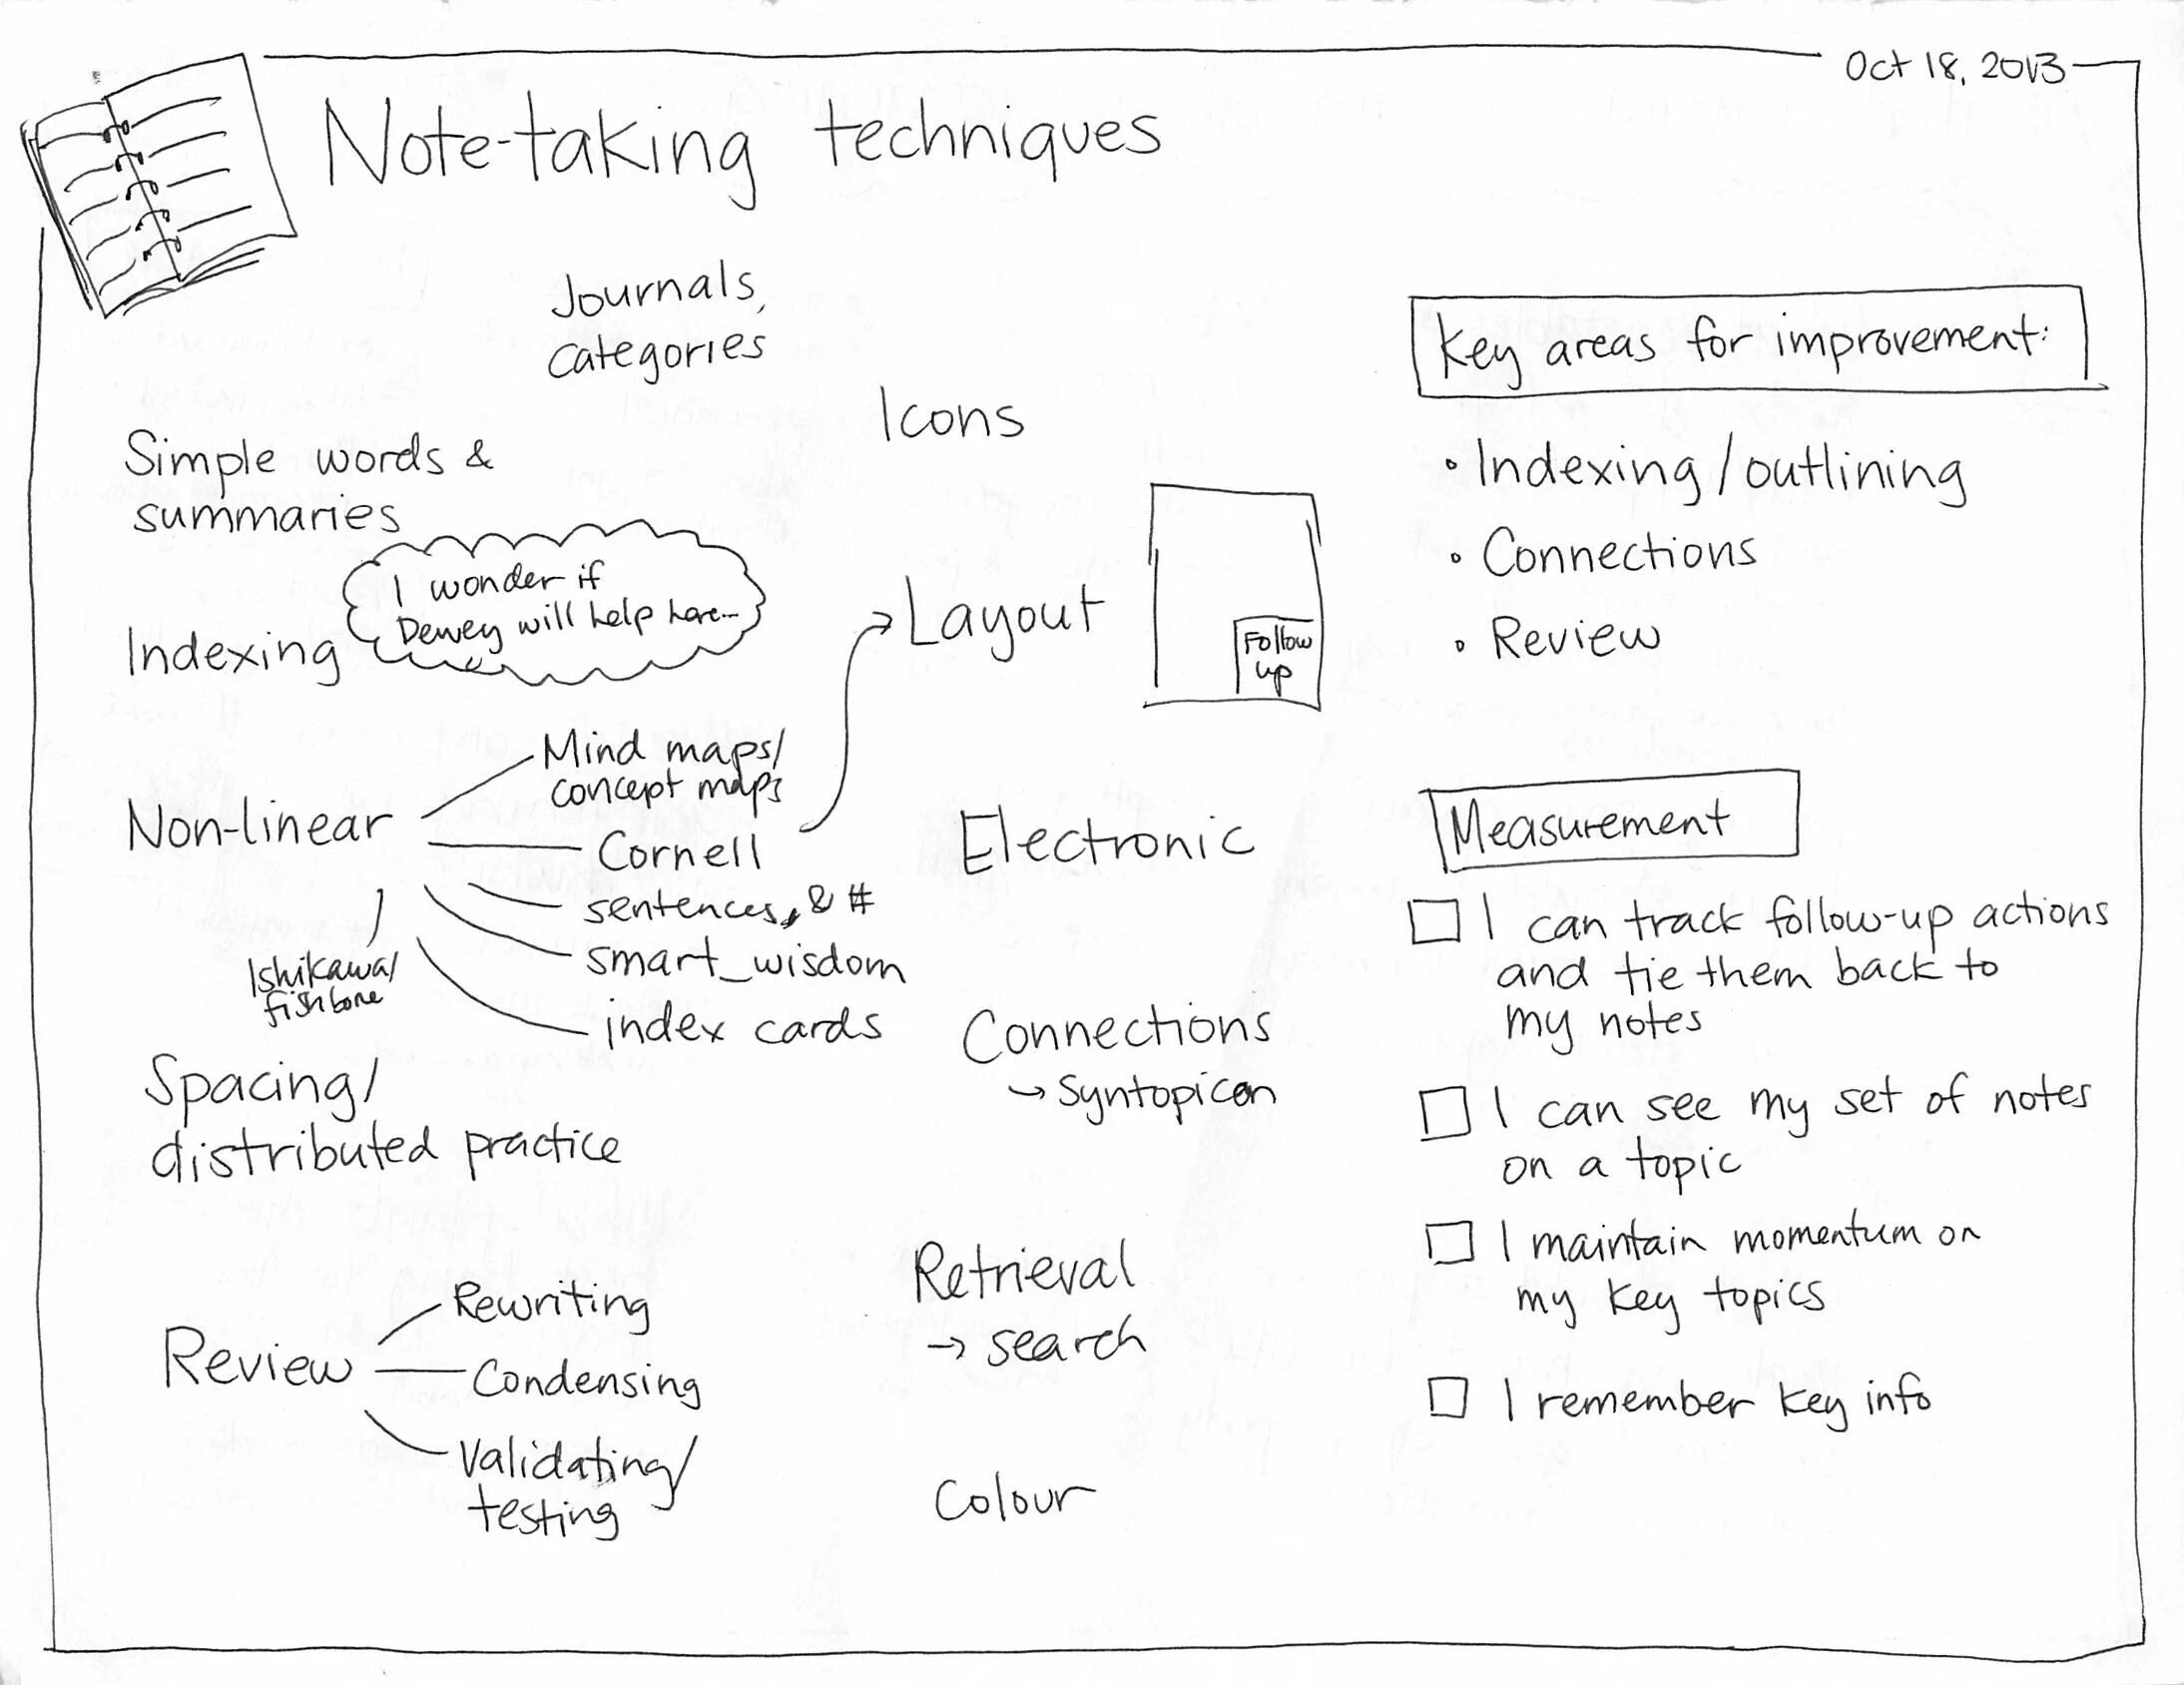 Oct 18, 2013
Note-taking techniques
Journals,
categories
Icons
Simple words &
summaries
I wonder if
Dewey will help here...
Indexing
Layout
Follow
up
Non-linear
Mind maps/
concept maps
Cornell
sentences, & #
smart_wisdom
index cards
Ishikawa/
fishbone
Electronic
Connections
→ Syntopicon
Spacing/
distributed practice
Retrieval
→ search
Review
Rewriting
Condensing
Validating/
testing
Colour
Key areas for improvement:
• Indexing/outlining
• Connections
• Review
Measurement
I can track follow-up actions
and tie them back to
my notes
I can see my set of notes
on a topic
I maintain momentum on
my key topics
I remember key info